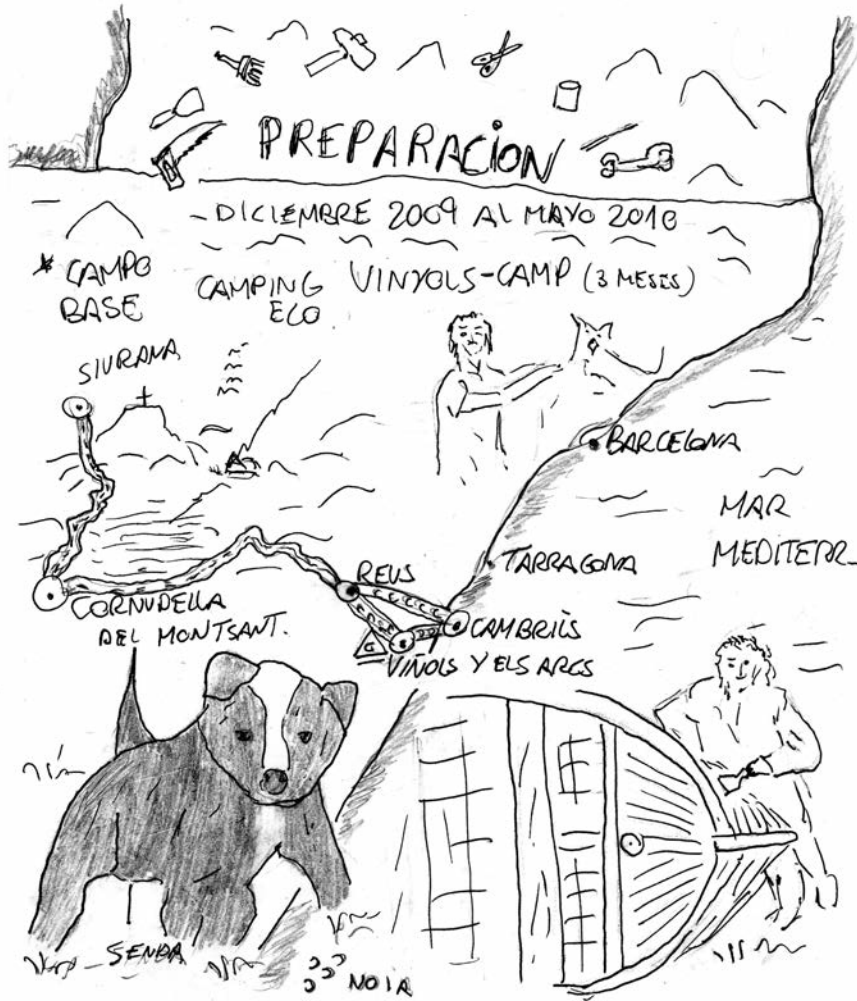 PREPARACION
- DICIEMBRE 2009 AL MAYO 2010
* CAMPO
BASE
CAMPING
ECO
VINYOLS-CAMP (3 MESES)
SIURANA
BARCELONA
MAR
MEDITERR_
TARRAGONA
REUS
CORNUDELLA
DEL MONTSANT.
CAMBRIÌS
VIÑOLS Y ELS ARCS
SENDA
NOIA